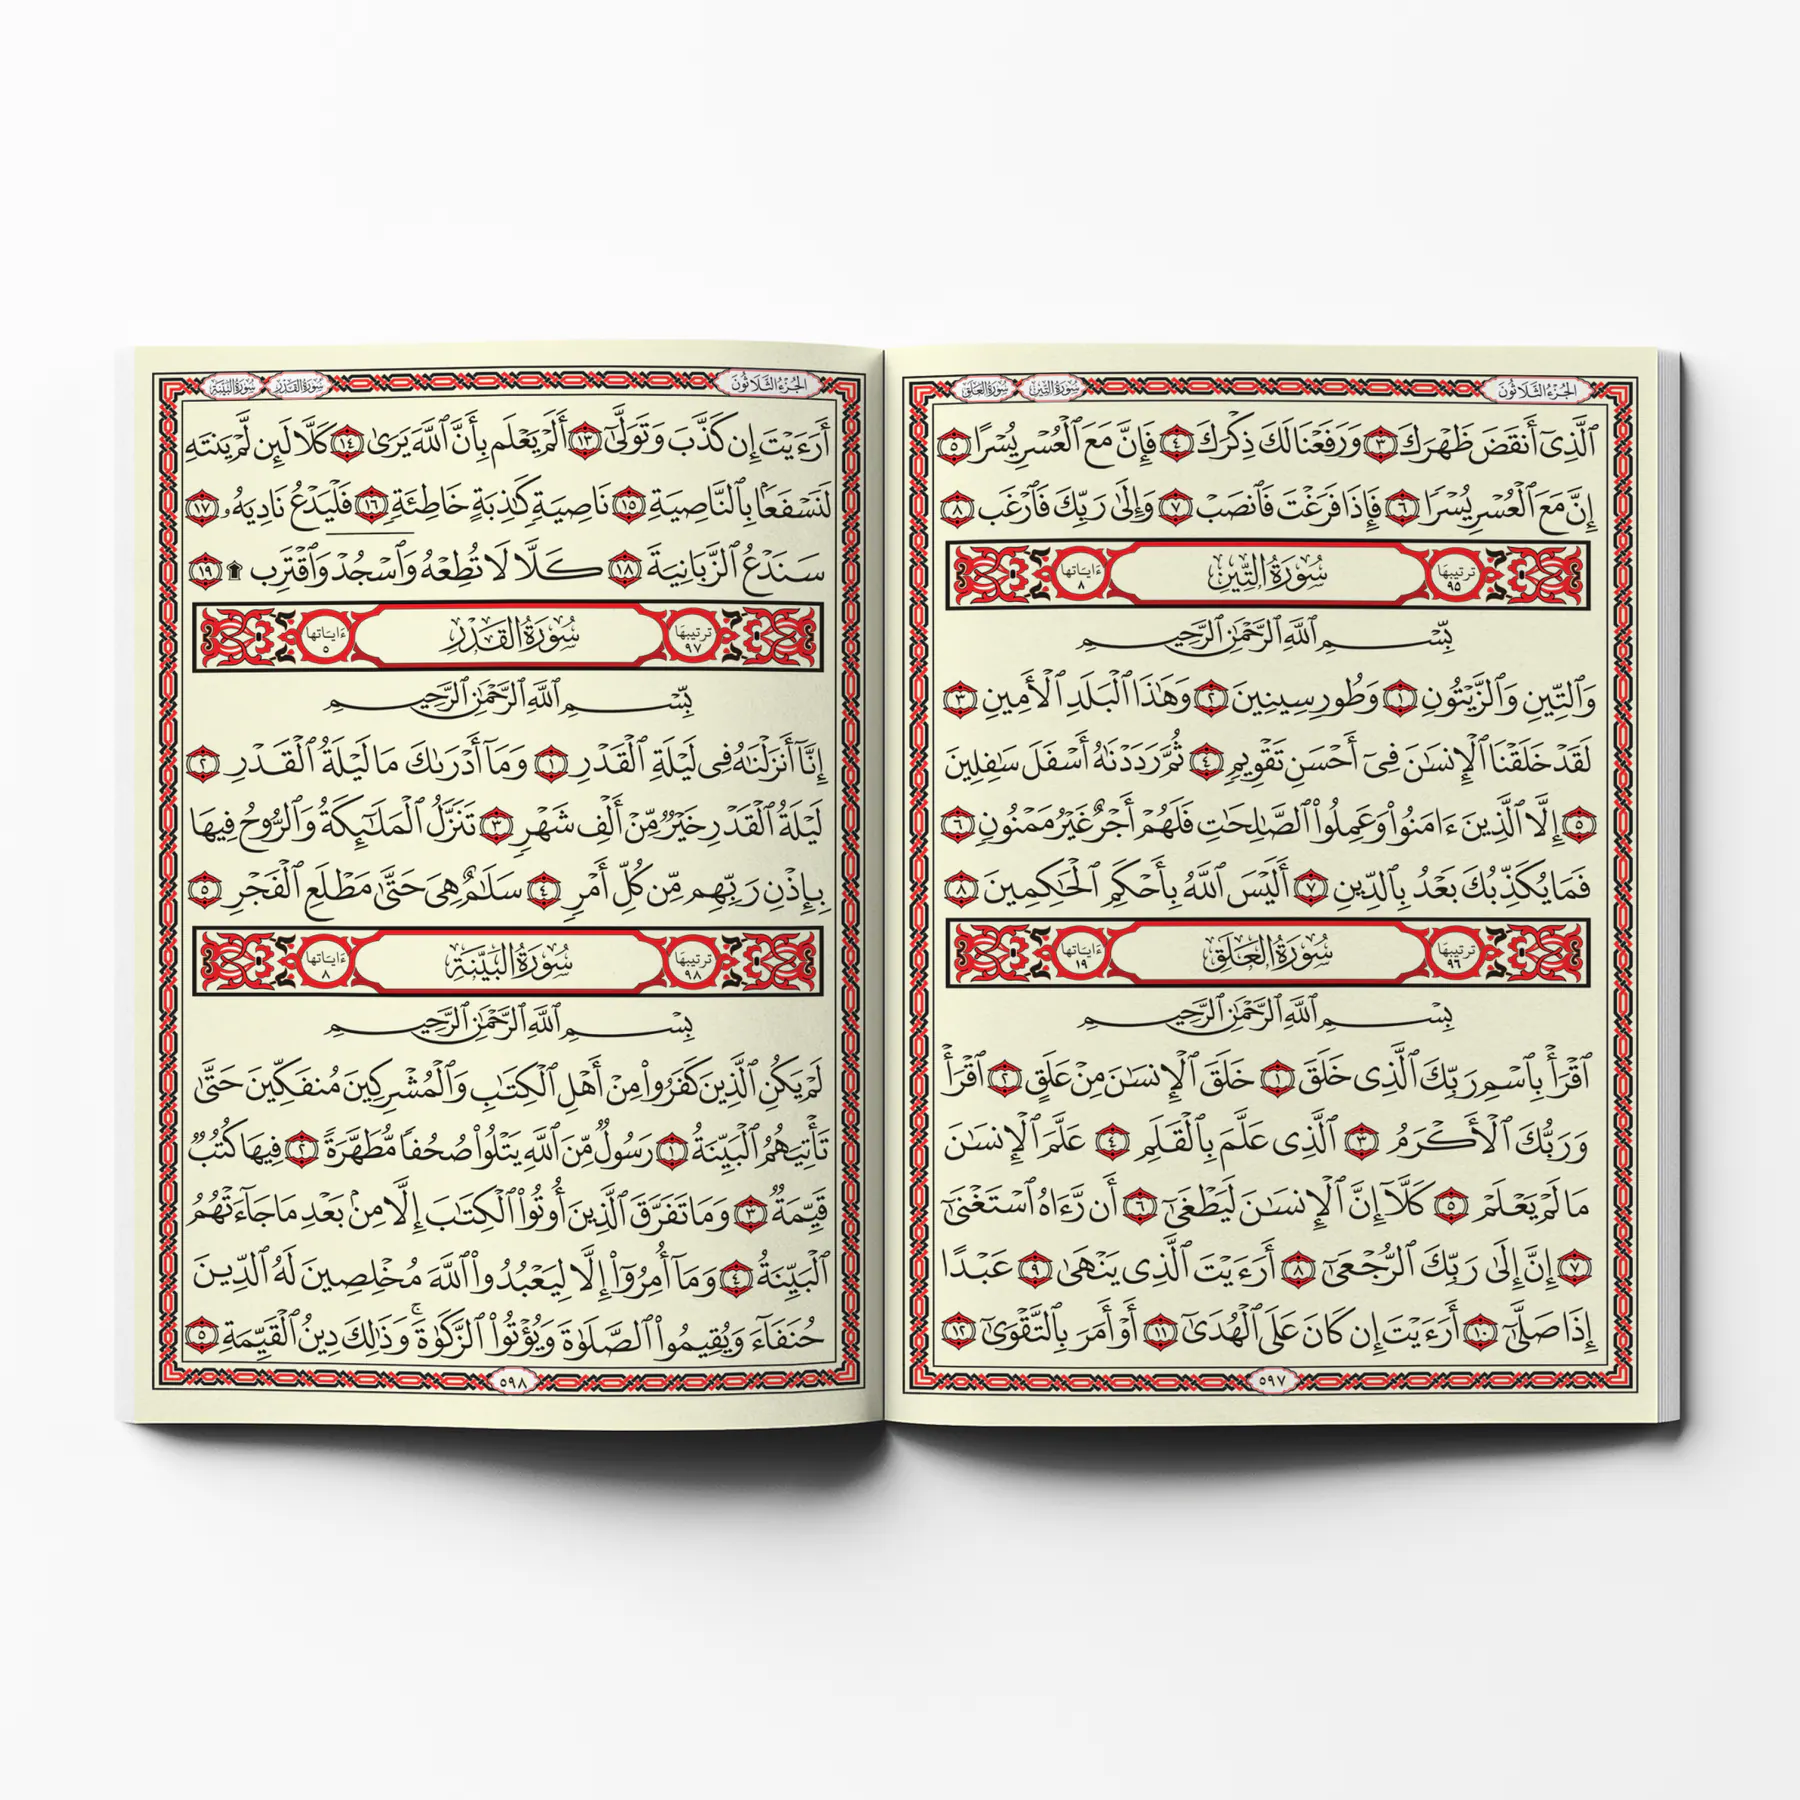 الجزء الثلاثون
سورة التين
سورة العلق
ٱلَّذِىٓ أَنقَضَ ظَهْرَكَ ٣ وَرَفَعْنَا لَكَ ذِكْرَكَ ٤ فَإِنَّ مَعَ ٱلْعُسْرِ يُسْرًا ٥
إِنَّ مَعَ ٱلْعُسْرِ يُسْرًا ٦ فَإِذَا فَرَغْتَ فَٱنصَبْ ٧ وَإِلَىٰ رَبِّكَ فَٱرْغَب ٨
ترتيبها ٩٥ سُورَةُ التِّينِ ءاياتها ٨
بِّسْمِ ٱللَّهِ ٱلرَّحْمَٰنِ ٱلرَّحِيمِ
وَٱلتِّينِ وَٱلزَّيْتُونِ ١ وَطُورِ سِينِينَ ٢ وَهَٰذَا ٱلْبَلَدِ ٱلْأَمِينِ ٣
لَقَدْ خَلَقْنَا ٱلْإِنسَٰنَ فِىٓ أَحْسَنِ تَقْوِيمٍ ٤ ثُمَّ رَدَدْنَٰهُ أَسْفَلَ سَٰفِلِينَ
٥ إِلَّا ٱلَّذِينَ ءَامَنُوا۟ وَعَمِلُوا۟ ٱلصَّٰلِحَٰتِ فَلَهُمْ أَجْرٌ غَيْرُ مَمْنُونٍ ٦
فَمَا يُكَذِّبُكَ بَعْدُ بِٱلدِّينِ ٧ أَلَيْسَ ٱللَّهُ بِأَحْكَمِ ٱلْحَٰكِمِينَ ٨
ترتيبها ٩٦ سُورَةُ العَلَقِ ءاياتها ١٩
بِسْمِ ٱللَّهِ ٱلرَّحْمَٰنِ ٱلرَّحِيمِ
ٱقْرَأْ بِٱسْمِ رَبِّكَ ٱلَّذِى خَلَقَ ١ خَلَقَ ٱلْإِنسَٰنَ مِنْ عَلَقٍ ٢ ٱقْرَأْ
وَرَبُّكَ ٱلْأَكْرَمُ ٣ ٱلَّذِى عَلَّمَ بِٱلْقَلَمِ ٤ عَلَّمَ ٱلْإِنسَٰنَ
مَا لَمْ يَعْلَمْ ٥ كَلَّآ إِنَّ ٱلْإِنسَٰنَ لَيَطْغَىٰٓ ٦ أَن رَّءَاهُ ٱسْتَغْنَىٰٓ
٧ إِنَّ إِلَىٰ رَبِّكَ ٱلرُّجْعَىٰٓ ٨ أَرَءَيْتَ ٱلَّذِى يَنْهَىٰ ٩ عَبْدًا
إِذَا صَلَّىٰٓ ١٠ أَرَءَيْتَ إِن كَانَ عَلَى ٱلْهُدَىٰٓ ١١ أَوْ أَمَرَ بِٱلتَّقْوَىٰٓ ١٢
٥٩٧
الجزء الثلاثون
سورة القدر
سورة البينة
أَرَءَيْتَ إِن كَذَّبَ وَتَوَلَّىٰٓ ١٣ أَلَمْ يَعْلَم بِأَنَّ ٱللَّهَ يَرَىٰ ١٤ كَلَّا لَئِن لَّمْ يَنتَهِ
لَنَسْفَعًۢا بِٱلنَّاصِيَةِ ١٥ نَاصِيَةٍ كَٰذِبَةٍ خَاطِئَةٍ ١٦ فَلْيَدْعُ نَادِيَهُۥ ١٧
سَنَدْعُ ٱلزَّبَانِيَةَ ١٨ كَلَّا لَا تُطِعْهُ وَٱسْجُدْ وَٱقْتَرِب ۩ ١٩
ترتيبها ٩٧ سُورَةُ القَدْرِ ءاياتها ٥
بِّسْمِ ٱللَّهِ ٱلرَّحْمَٰنِ ٱلرَّحِيمِ
إِنَّآ أَنزَلْنَٰهُ فِى لَيْلَةِ ٱلْقَدْرِ ١ وَمَآ أَدْرَىٰكَ مَا لَيْلَةُ ٱلْقَدْرِ ٢
لَيْلَةُ ٱلْقَدْرِ خَيْرٌ مِّنْ أَلْفِ شَهْرٍ ٣ تَنَزَّلُ ٱلْمَلَٰٓئِكَةُ وَٱلرُّوحُ فِيهَا
بِإِذْنِ رَبِّهِم مِّن كُلِّ أَمْرٍ ٤ سَلَٰمٌ هِىَ حَتَّىٰ مَطْلَعِ ٱلْفَجْرِ ٥
ترتيبها ٩٨ سُورَةُ البَيِّنَةِ ءاياتها ٨
بِسْمِ ٱللَّهِ ٱلرَّحْمَٰنِ ٱلرَّحِيمِ
لَمْ يَكُنِ ٱلَّذِينَ كَفَرُوا۟ مِنْ أَهْلِ ٱلْكِتَٰبِ وَٱلْمُشْرِكِينَ مُنفَكِّينَ حَتَّىٰ
تَأْتِيَهُمُ ٱلْبَيِّنَةُ ١ رَسُولٌ مِّنَ ٱللَّهِ يَتْلُوا۟ صُحُفًا مُّطَهَّرَةً ٢ فِيهَا كُتُبٌ
قَيِّمَةٌ ٣ وَمَا تَفَرَّقَ ٱلَّذِينَ أُوتُوا۟ ٱلْكِتَٰبَ إِلَّا مِنۢ بَعْدِ مَا جَآءَتْهُمُ
ٱلْبَيِّنَةُ ٤ وَمَآ أُمِرُوٓا۟ إِلَّا لِيَعْبُدُوا۟ ٱللَّهَ مُخْلِصِينَ لَهُ ٱلدِّينَ
حُنَفَآءَ وَيُقِيمُوا۟ ٱلصَّلَوٰةَ وَيُؤْتُوا۟ ٱلزَّكَوٰةَ ۚ وَذَٰلِكَ دِينُ ٱلْقَيِّمَةِ ٥
٥٩٨